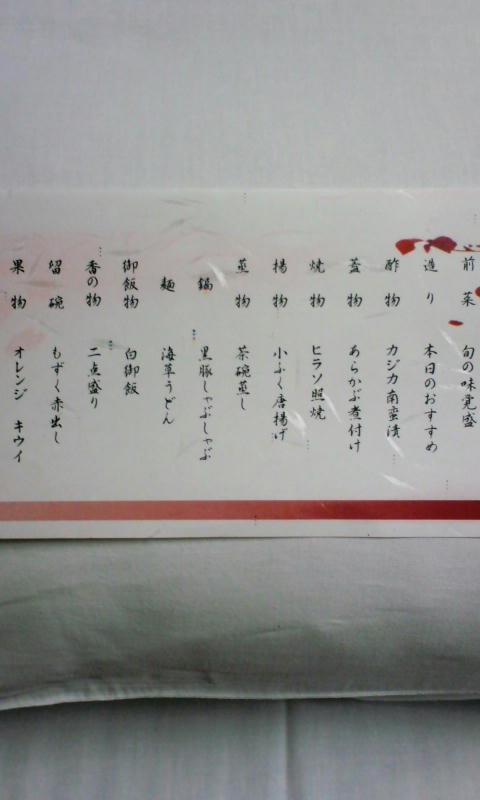 前菜 旬の味覚盛
造り 本日のおすすめ
酢物 カジカ南蛮漬
蓋物 あらかぶ煮付け
焼物 ヒラソ照焼
揚物 小ふく唐揚げ
蒸物 茶碗蒸し
鍋 黒豚しゃぶしゃぶ
麺 海草うどん
御飯物 白御飯
香の物 二点盛り
留碗 もずく赤出し
果物 オレンジ キウイ